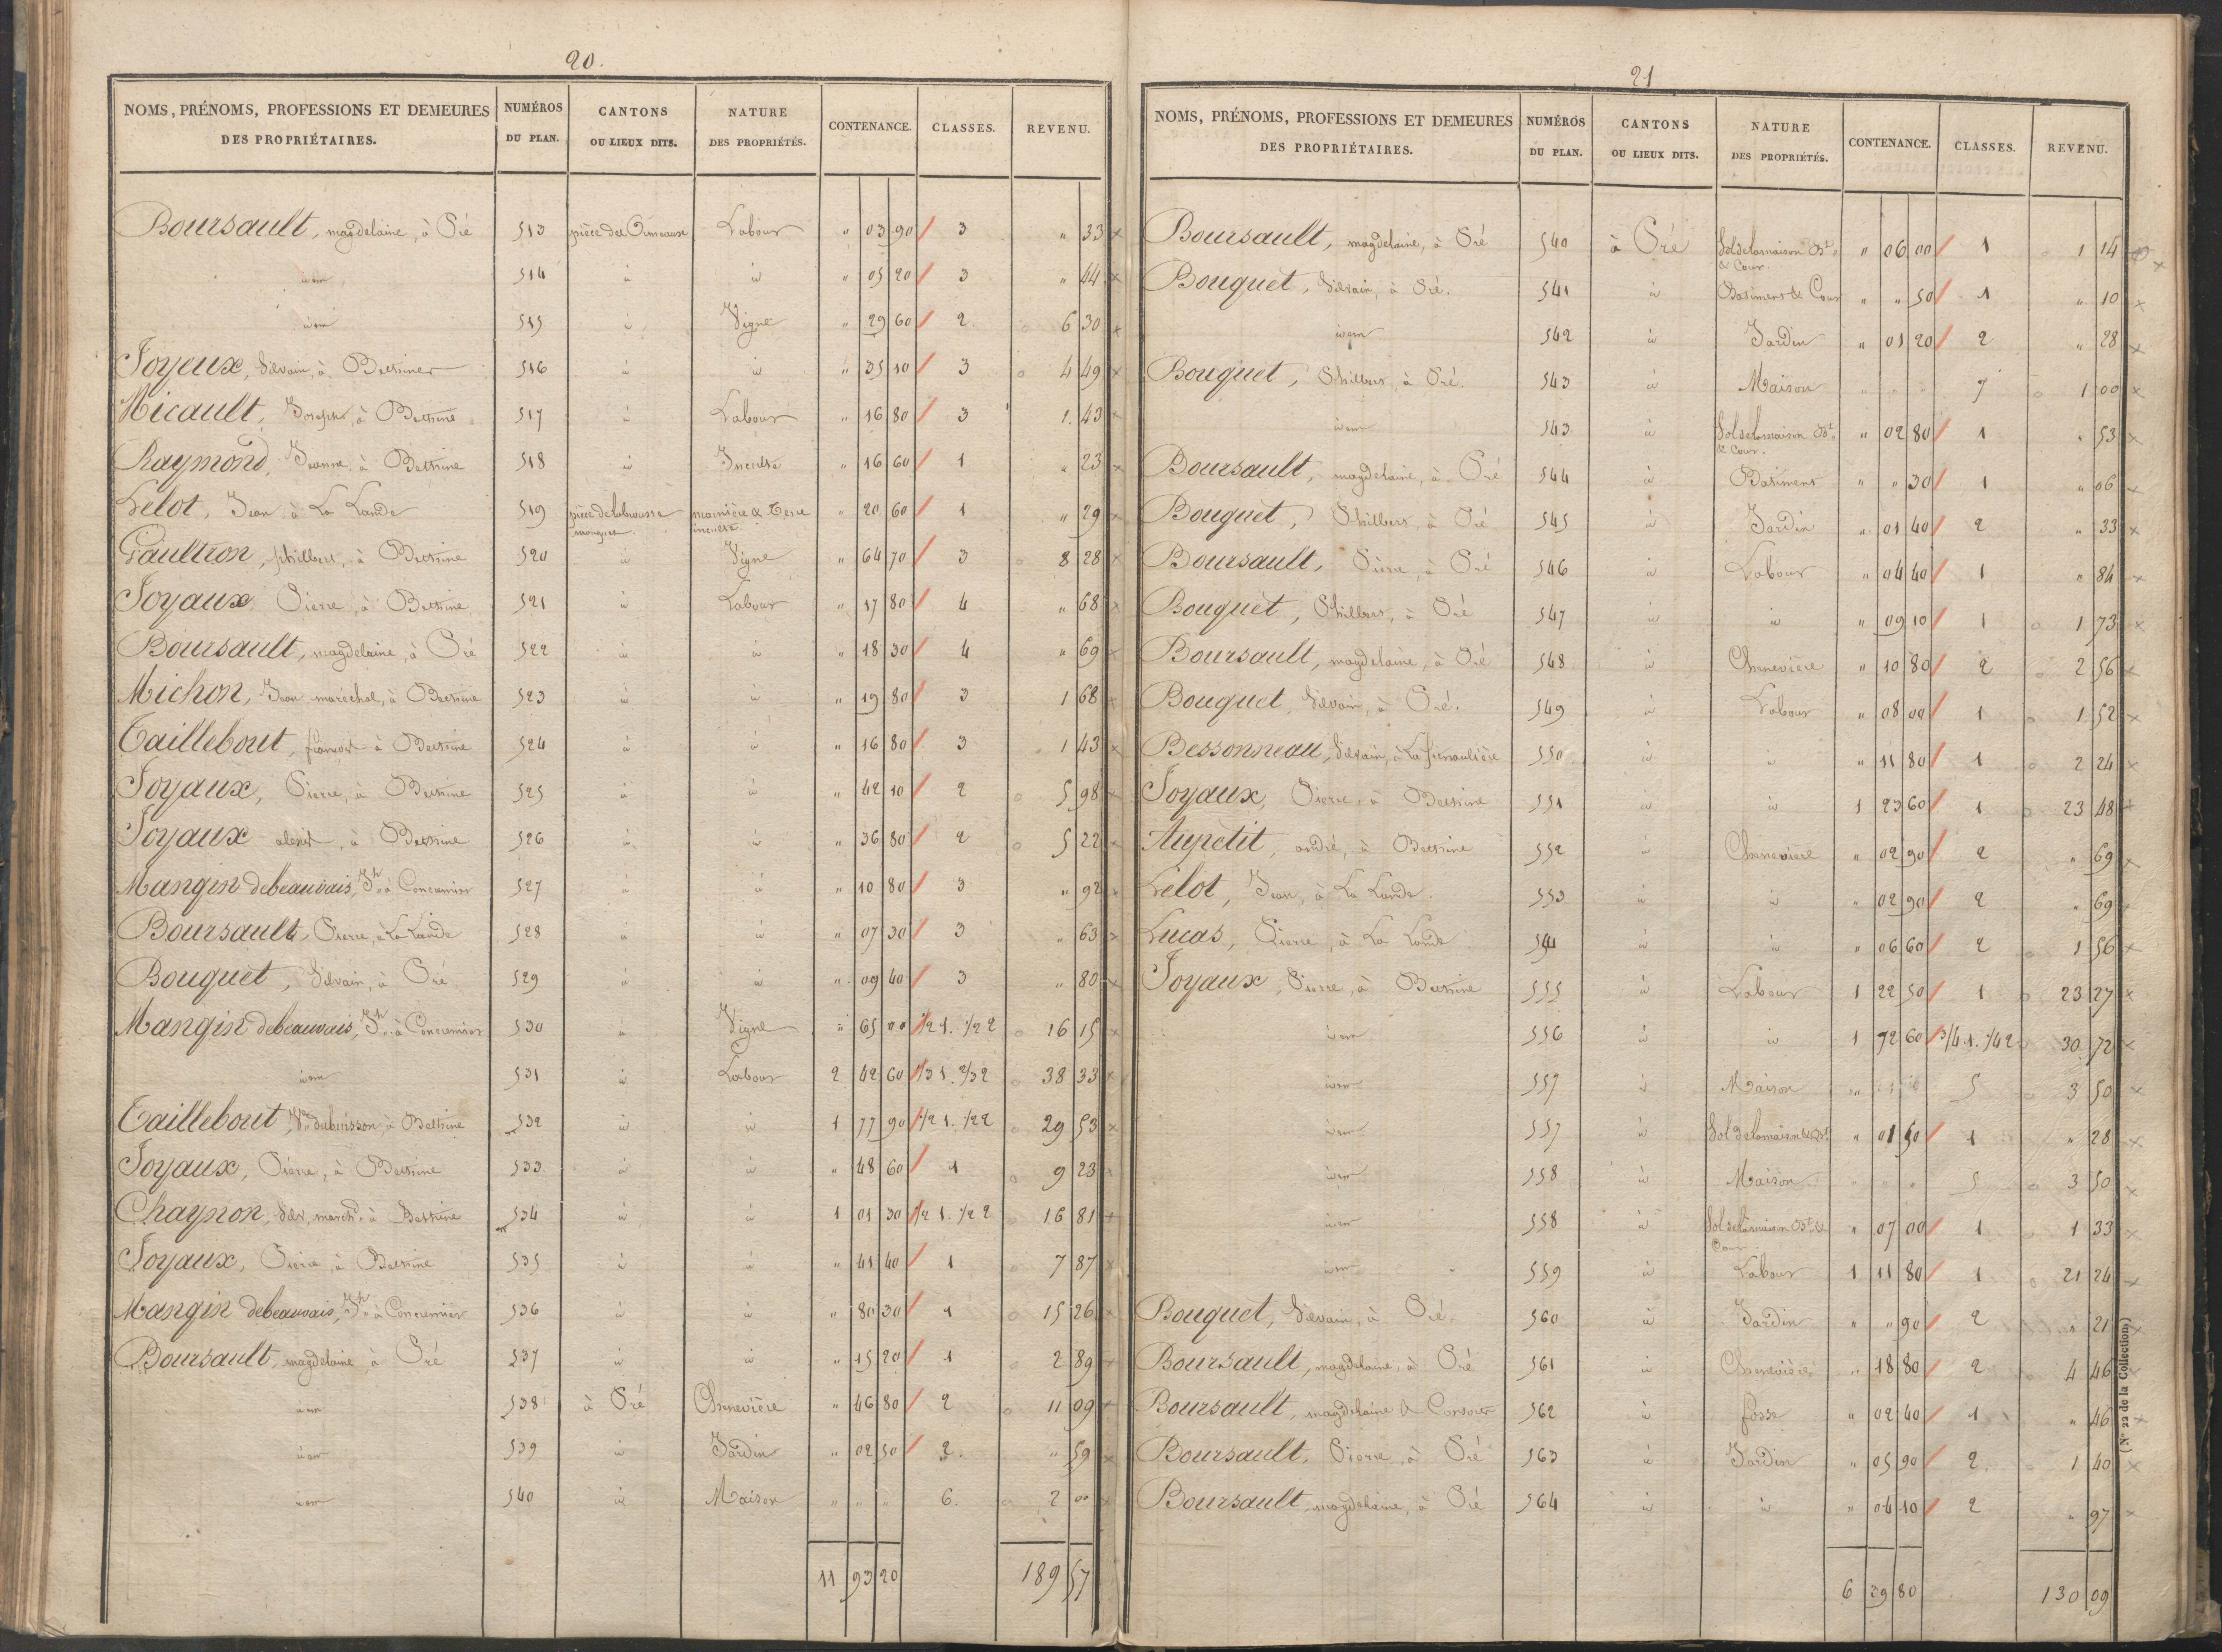 20.
NOMS, PRÉNOMS, PROFESSIONS ET DEMEURES DES PROPRIÉTAIRES. NUMÉROS DU PLAN. CANTONS OU LIEUX DITS. NATURE DES PROPRIÉTÉS. CONTENANCE. CLASSES. REVENU.
Boursault, magdelaine, à Pré 513 pièce des Ormeaux Labour " 03 90 3 " 33
idem 514 id id " 05 20 3 " 44
idem 515 id Vigne " 29 60 2 6 30
Joyeux, Silvain, à 516 id id " 35 10 3 4 49
Micault, Joseph, à 517 id Labour " 16 80 3 1 43
Raymond, Jeanne, à 518 id Inculte " 16 60 1 " 23
Lelot, Jean, à La Lande 519 pièce de marnière & Terre inculte " 20 60 1 " 29
Gaultron, philbert, à 520 id Vigne " 64 70 3 8 28
Joyaux Pierre, à 521 id Labour " 17 80 4 " 68
Boursault, magdelaine, à Pré 522 id id " 18 30 4 " 69
Michon, Jean maréchal, à 523 id id " 19 80 3 1 68
Taillebout, françois à 524 id id " 16 80 3 1 43
Joyaux, Pierre, à 525 id id " 42 10 2 5 98
Joyaux alexis, à 526 id id " 36 80 2 5 22
Mangin debeauvais, Jh. à Concremier 527 id id " 10 80 3 " 92
Boursault, Pierre, à La Lande 528 id id " 07 30 3 " 63
Bouquet, Silvain, à Pré 529 id id " 09 40 3 " 80
Mangin debeauvais, Jh. à Concremier 530 id Vigne " 65 20 1/2 1. 1/2 2 16 15
idem 531 id Labour 2 42 60 1/3 1. 2/3 2 38 33
Taillebout, Ve dubuisson, à 532 id id 1 77 90 1/2 1. 1/2 2 29 53
Joyaux, Pierre, à 533 id id " 48 60 1 9 23
Chaynon, Silv. march. à 534 id id 1 01 30 1/2 1. 1/2 2 16 81
Joyaux, Pierre, à 535 id id " 41 40 1 7 87
Mangin debeauvais, Jh. à Concremier 536 id id " 80 30 1 15 26
Boursault, magdelaine à Pré 537 id id " 15 20 1 2 89
idem 538 à Pré Chenevière " 46 80 2 11 09
idem 539 id Jardin " 02 50 2. " 59
idem 540 id Maison " " " 6. 2 00
11 93 20 189 57
21
NOMS, PRÉNOMS, PROFESSIONS ET DEMEURES DES PROPRIÉTAIRES. NUMÉROS DU PLAN. CANTONS OU LIEUX DITS. NATURE DES PROPRIÉTÉS. CONTENANCE. CLASSES. REVENU.
Boursault, magdelaine, à Pré 540 à Pré Sol de la maison Bt. & Cour. " 06 00 1 1 14
Bouquet, Silvain, à Pré. 541 id Batiment & Cour " " 50 1 " 10
idem 542 id Jardin " 01 20 2 " 28
Bouquet, Philbert, à Pré. 543 id Maison " " " 7 1 00
idem 543 id Sol de la maison Bt. & Cour. " 02 80 1 " 53
Boursault, magdelaine, à Pré 544 id Batiment " " 30 1 " 06
Bouquet, Philbert, à Pré 545 id Jardin " 01 40 2 " 33
Boursault, Pierre, à Pré 546 id Labour " 04 40 1 " 84
Bouquet, Philbert, à Pré 547 id id " 09 10 1 1 73
Boursault, magdelaine, à Pré 548 id Chenevière " 10 80 2 2 56
Bouquet, Silvain, à Pré. 549 id Labour " 08 00 1 1 52
Bessonneau, Silvain, à 550 id id " 11 80 1 2 24
Joyaux, Pierre, à 551 id id 1 23 60 1 23 48
Aupetit, andré, à 552 id Chenevière " 02 90 2 " 69
Lelot, Jean, à La Lande. 553 id id " 02 90 2 " 69
Lucas, Pierre, à La Lande 554 id id " 06 60 2 1 56
Joyaux, Pierre, à 555 id Labour 1 22 50 1 23 27
idem 556 id id 1 72 60 3/4 1. 1/4 2 30 72
idem 557 id Maison " " " 5 3 50
idem 557 id Sol de la maison & Bt. " 01 50 1 " 28
idem 558 id Maison " " " 5 3 50
idem 558 id Sol de la maison Bt. & Cour " 07 00 1 1 33
idem 559 id Labour 1 11 80 1 21 24
Bouquet, Silvain, à Pré. 560 id Jardin " " 90 2 " 21
Boursault, magdelaine, à Pré 561 id Chenevière " 18 80 2 4 46
Boursault, magdelaine & Consorts 562 id fosse " 02 40 1 " 46
Boursault, Pierre, à Pré 563 id Jardin " 05 90 2. 1 40
Boursault, magdelaine, à Pré 564 id id " 04 10 2 " 97
6 39 80 130 09
(N° 22 de la Collection)